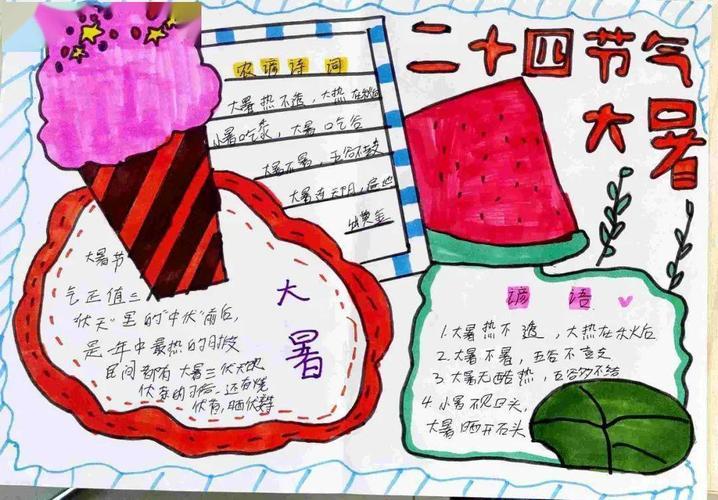 二十四节气
大暑
农谚诗词
大暑热不透，大热在秋后
小暑吃黍，大暑吃谷
大暑不暑，五谷不鼓
大暑连天阴，遍地
出黄金
大暑节
气正值三
伏天里的"中伏"前后，
是一年中最热的时段
民间都有大暑三伏天
伏茶的习俗，还有烧
伏香，晒伏姜
大暑
谚语
1.大暑热不透，大热在秋后
2.大暑不暑，五谷不
3.大暑无酷热，五谷多不结
4.小暑不见日头，
大暑晒开石头